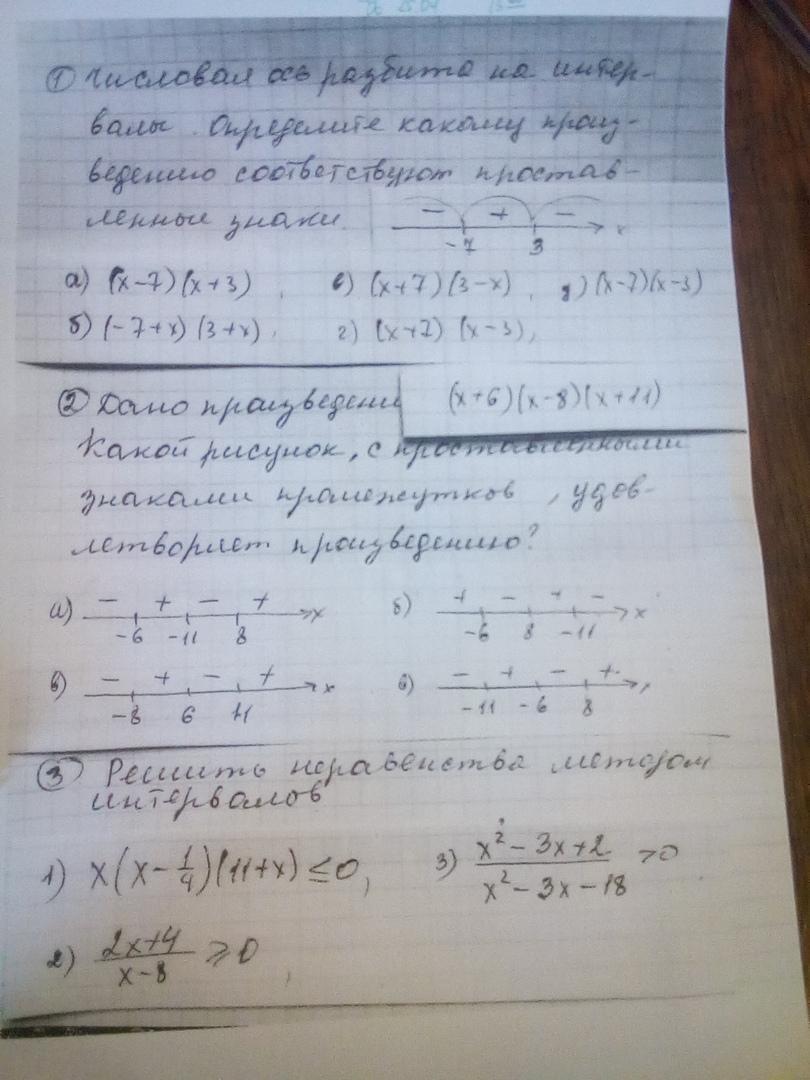 ① Числовая ось разбита на интер-
валы. Определите какому произ-
ведению соответствуют простав-
ленные знаки.
− + −
-7 3 x
а) (x-7)(x+3), в) (x+7)(3-x), д) (x-7)(x-3)
б) (-7+x)(3+x), г) (x+7)(x-3),
② Дано произведени (x+6)(x-8)(x+11)
Какой рисунок, с проставленными
знаками промежутков, удов-
летворяет произведению?
а) − + − +
-6 -11 8 x
б) + − + −
-6 8 -11 x
в) − + − +
-8 6 11 x
в) − + − +
-11 -6 8
③ Решить неравенства методом
интервалов
1) x(x-1/4)(11+x) ≤ 0,
3) (x²-3x+2)/(x²-3x-18) >0
2) (2x+4)/(x-8) ≥ 0,